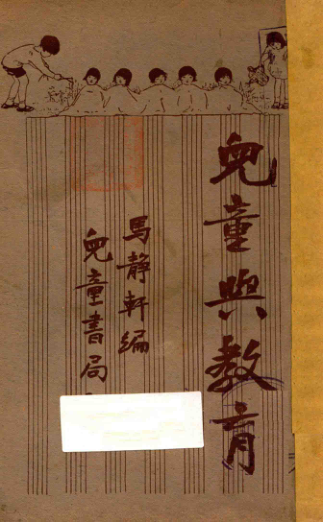 兒童與教育
馬靜軒編
兒童書局